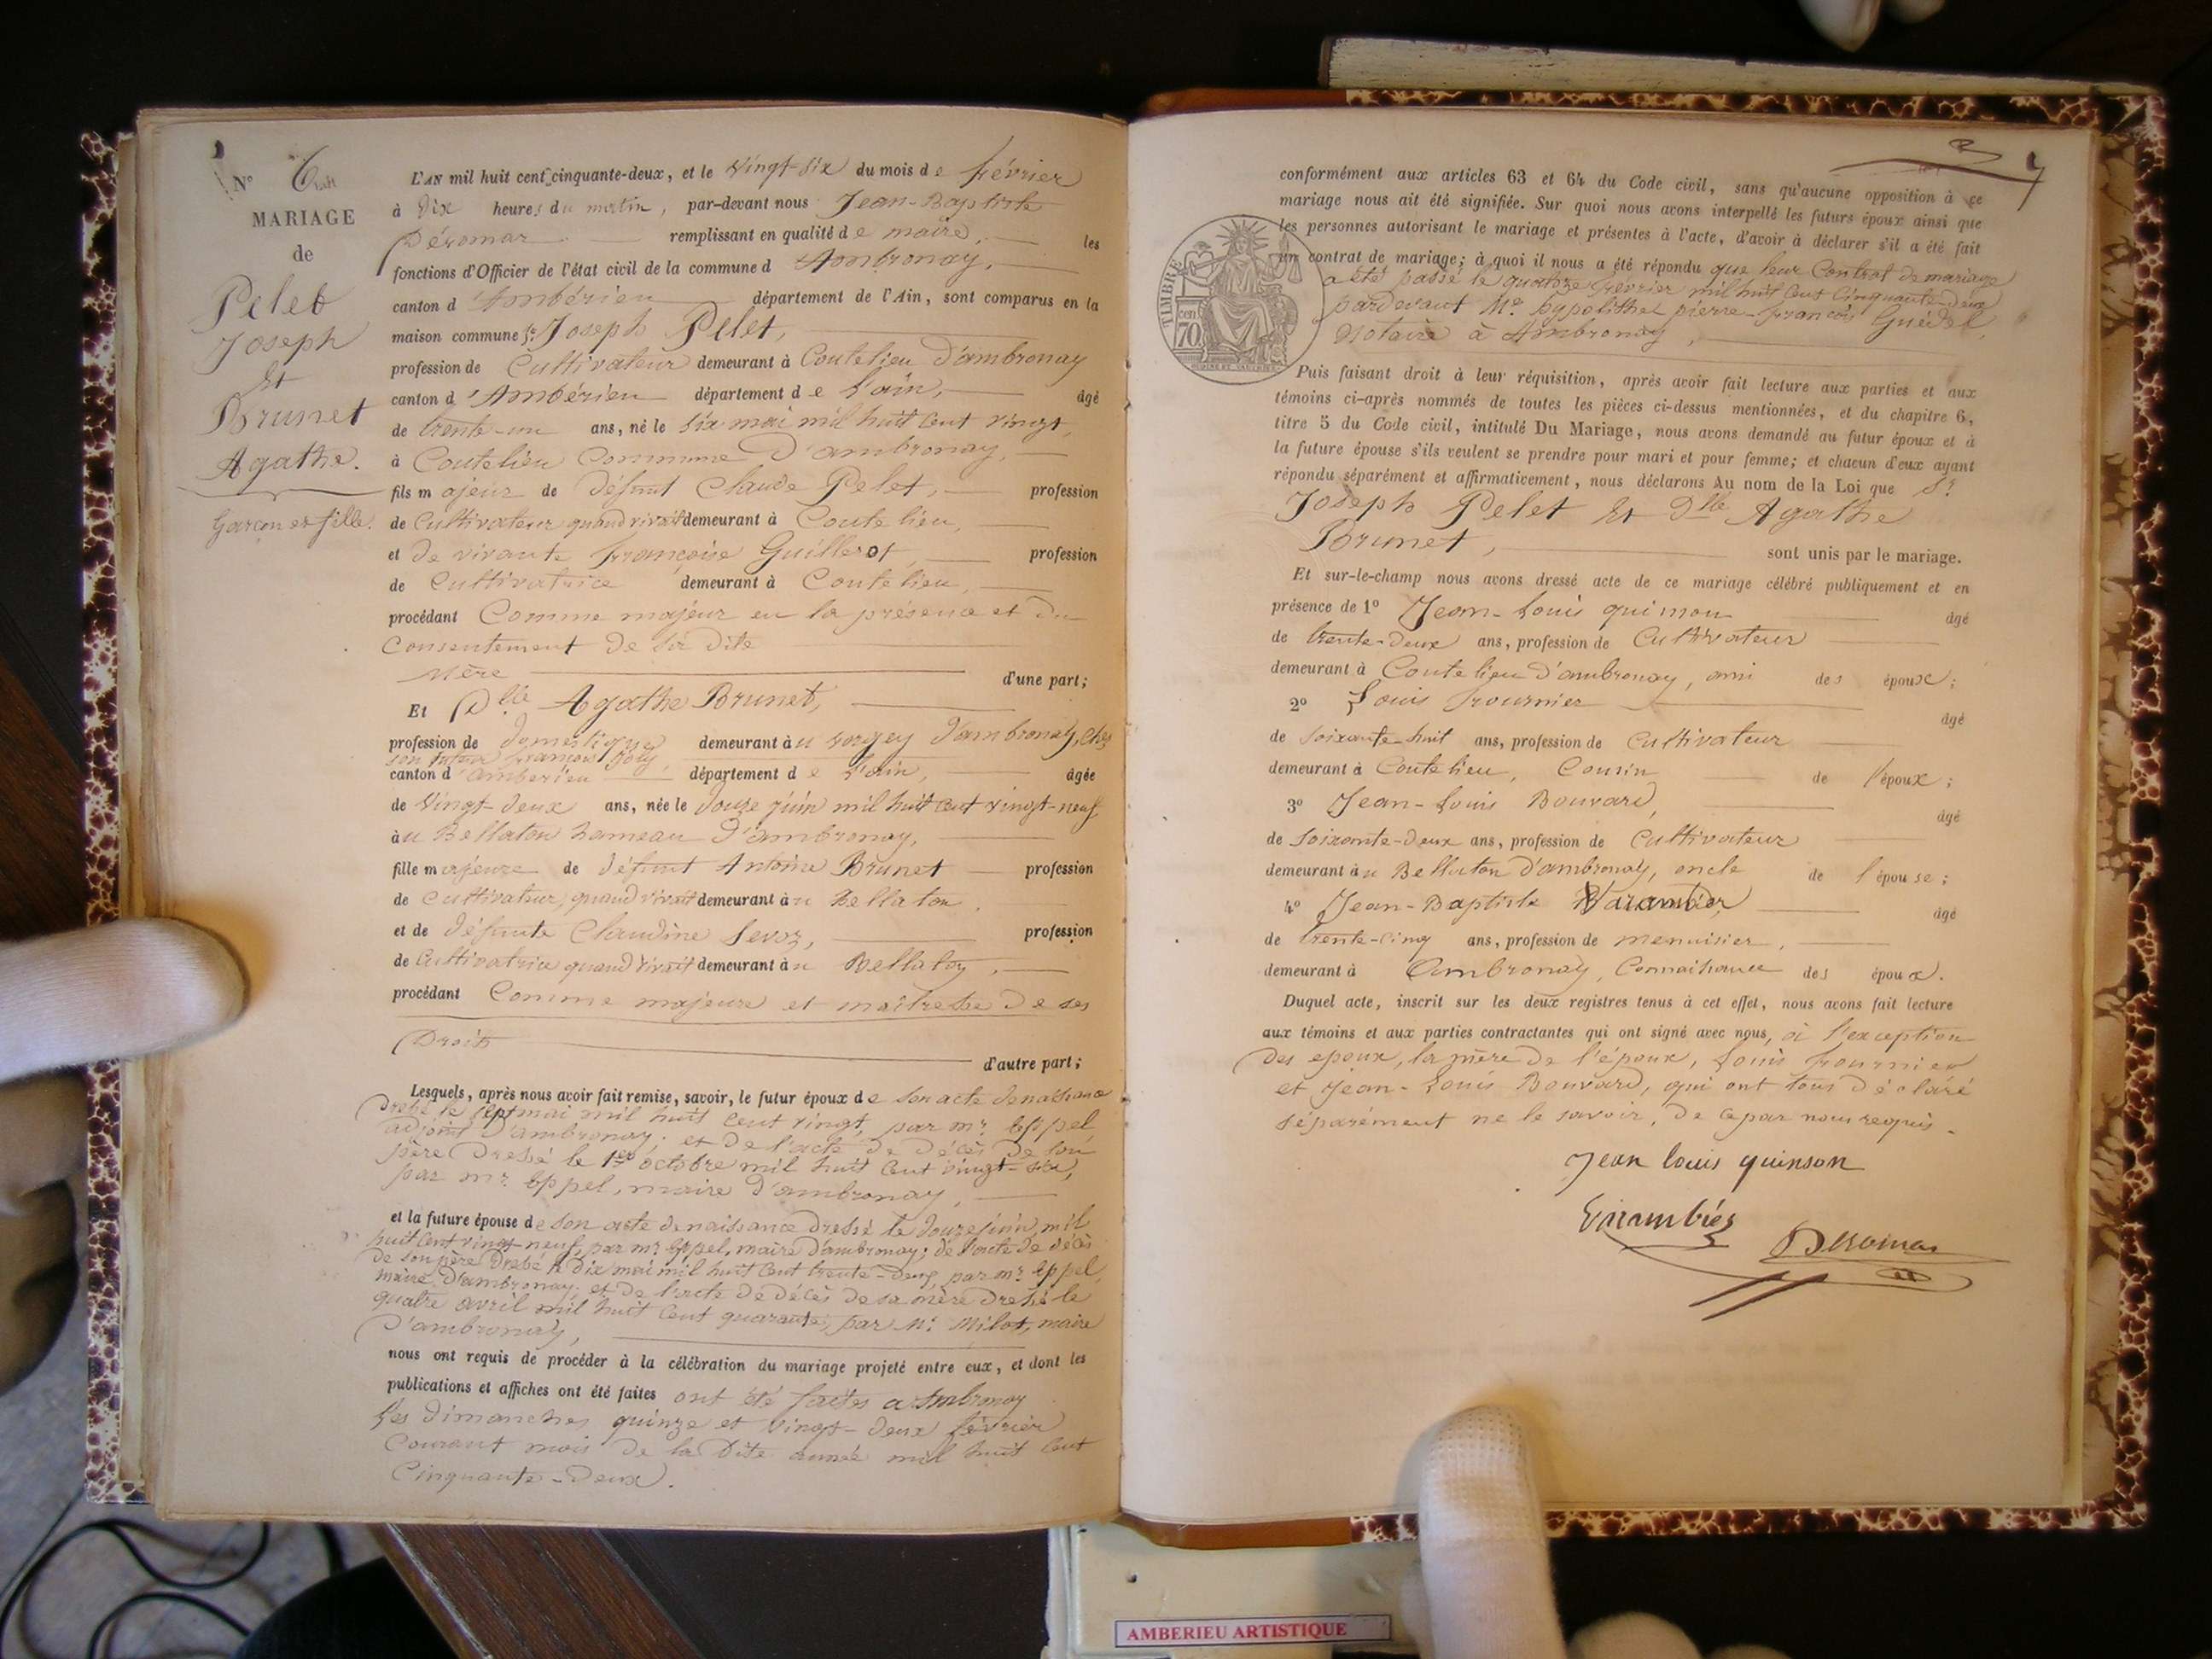 N° 6
MARIAGE
de
Pelet
Joseph
Et
Brunet
Agathe.
Garçon et fille.
L'AN mil huit cent cinquante-deux, et le vingt-six du mois de février
à dix heures du matin, par-devant nous Jean-Baptiste
Déromas remplissant en qualité de maire, les
fonctions d'Officier de l'état civil de la commune d'Ambronay,
canton d'Ambérieu département de l'Ain, sont comparus en la
maison commune Sr Joseph Pelet,
profession de Cultivateur demeurant à Coutelieu d'ambronay
canton d'Ambérieu département de l'ain, âgé
de trente-un ans, né le six mai mil huit cent vingt,
à Coutelieu Commune d'ambronay,
fils majeur de défunt Claude Pelet, profession
de Cultivateur quand vivait demeurant à Coutelieu,
et de vivante françoise Guillerot, profession
de Cultivatrice demeurant à Coutelieu,
procédant Comme majeur en la présence et du
Consentement de sa dite
Mère d'une part;
Et Dlle Agathe Brunet,
profession de domestique demeurant au vorgey d'ambronay, chez
son tuteur françois Joly,
canton d'ambérieu département de l'ain, âgée
de vingt-deux ans, née le douze juin mil huit cent vingt-neuf
au Bellaton hameau d'ambronay,
fille majeure de défunt Antoine Brunet profession
de cultivateur, quand vivait demeurant au Bellaton,
et de défunte Claudine Sevoz, profession
de Cultivatrice quand vivait demeurant au Bellaton,
procédant Comme majeure et maîtresse de ses
Droits d'autre part;
Lesquels, après nous avoir fait remise, savoir, le futur époux de son acte de naissance
dressé le sept mai mil huit cent vingt, par mr. Eppel
adjoint d'ambronay; et de l'acte de décès de son
père dressé le 1er octobre mil huit cent vingt-six,
par mr. Eppel, maire d'ambronay,
et la future épouse de son acte de naissance dressé le douze juin mil
huit cent vingt-neuf, par mr. Eppel, maire d'ambronay; de l'acte de décès
de son père dressé le dix mai mil huit cent trente-deux, par mr. Eppel,
maire d'ambronay, et de l'acte de décès de sa mère dressé le
quatre avril mil huit cent quarante, par Mr. Milot, maire
d'ambronay,
nous ont requis de procéder à la célébration du mariage projeté entre eux, et dont les
publications et affiches ont été faites ont été faites a Ambronay
Les dimanches quinze et vingt-deux février
Courant mois de la dite année mil huit cent
Cinquante-deux.
conformément aux articles 63 et 64 du Code civil, sans qu'aucune opposition à ce
mariage nous ait été signifiée. Sur quoi nous avons interpellé les futurs époux ainsi que
les personnes autorisant le mariage et présentes à l'acte, d'avoir à déclarer s'il a été fait
un contrat de mariage; à quoi il nous a été répondu que leur Contrat de mariage
a été passé le quatorze février mil huit cent cinquante-deux
pardevant Me. hypolithe pierre-françois Guédel,
Notaire à Ambronay,
TIMBRE
70 cen
Puis faisant droit à leur réquisition, après avoir fait lecture aux parties et aux
témoins ci-après nommés de toutes les pièces ci-dessus mentionnées, et du chapitre 6,
titre 5 du Code civil, intitulé Du Mariage, nous avons demandé au futur époux et à
la future épouse s'ils veulent se prendre pour mari et pour femme; et chacun d'eux ayant
répondu séparément et affirmativement, nous déclarons Au nom de la Loi que Sr.
Joseph Pelet Et Dlle Agathe
Brunet, sont unis par le mariage.
Et sur-le-champ nous avons dressé acte de ce mariage célébré publiquement et en
présence de 1° Jean-Louis quinson âgé
de trente-deux ans, profession de Cultivateur
demeurant à Coutelieu d'ambronay, ami des époux;
2° Louis fournier âgé
de soixante-huit ans, profession de Cultivateur
demeurant à Coutelieu, Cousin de l'époux;
3° Jean-Louis Bouvard, âgé
de soixante-deux ans, profession de Cultivateur
demeurant au Bellaton d'ambronay, oncle de l'épouse;
4° Jean-Baptiste Varambier âgé
de trente-cinq ans, profession de menuisier,
demeurant à Ambronay, Connaissance des époux.
Duquel acte, inscrit sur les deux registres tenus à cet effet, nous avons fait lecture
aux témoins et aux parties contractantes qui ont signé avec nous, à l'exception
des époux, la mère de l'époux, Louis fournier
et Jean-Louis Bouvard, qui ont tous déclaré
séparément ne le savoir, de ce par nous requis.
Jean louis quinson
Varambier
Déromas
AMBERIEU ARTISTIQUE